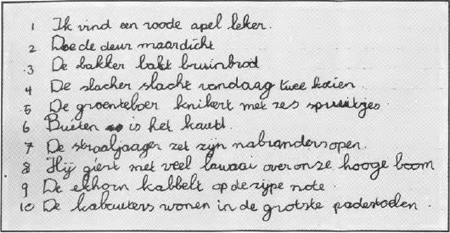 1 Ik vind een roode apel leker.
2 Doe de deur maardicht
3 De bakker bakt bruinbrod
4 De slacher slacht vandaag twee koien.
5 De groenteboer knikert met zes spruitjes.
6 Buiten is het kaud.
7 De straaljaager zet zijn nabrandersopen.
8 Hij giert met veel lawaai over onze hooge boom
9 De ekhorn kabbelt op de zijpe note.
10 De kabauters wonen in de grotste padestoelen.